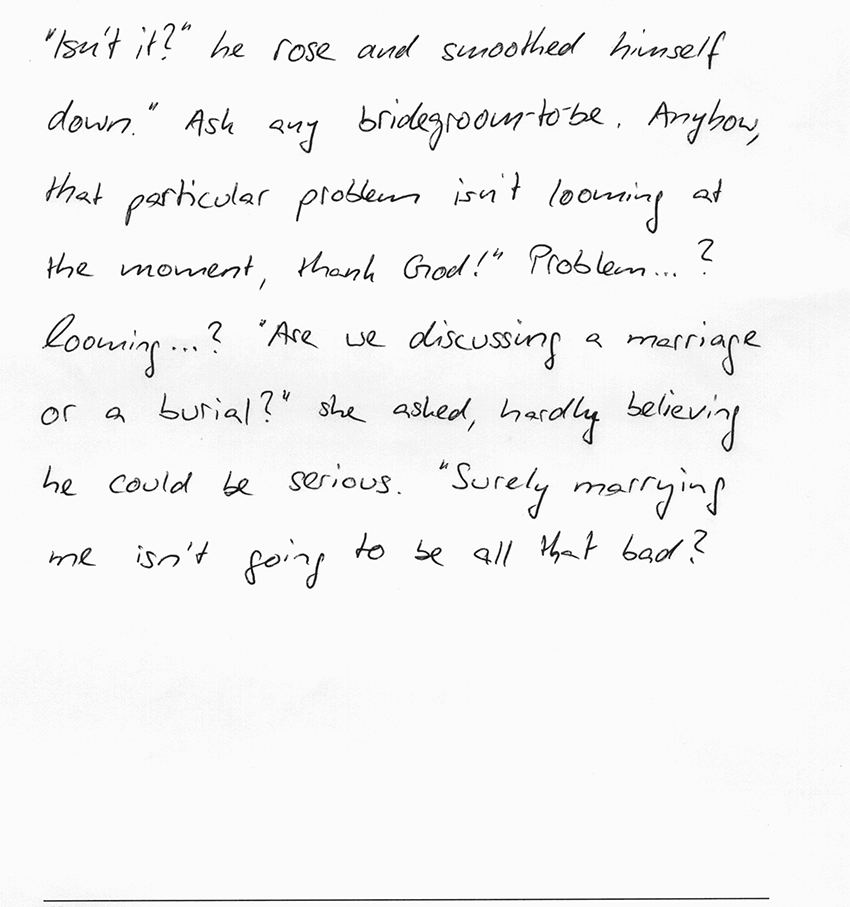 "Isn't it?" he rose and smoothed himself
down." Ask any bridegroom-to-be. Anyhow,
that particular problem isn't looming at
the moment, thank God!" Problem... ?
looming...? "Are we discussing a marriage
or a burial?" she asked, hardly believing
he could be serious. "Surely marrying
me isn't going to be all that bad?